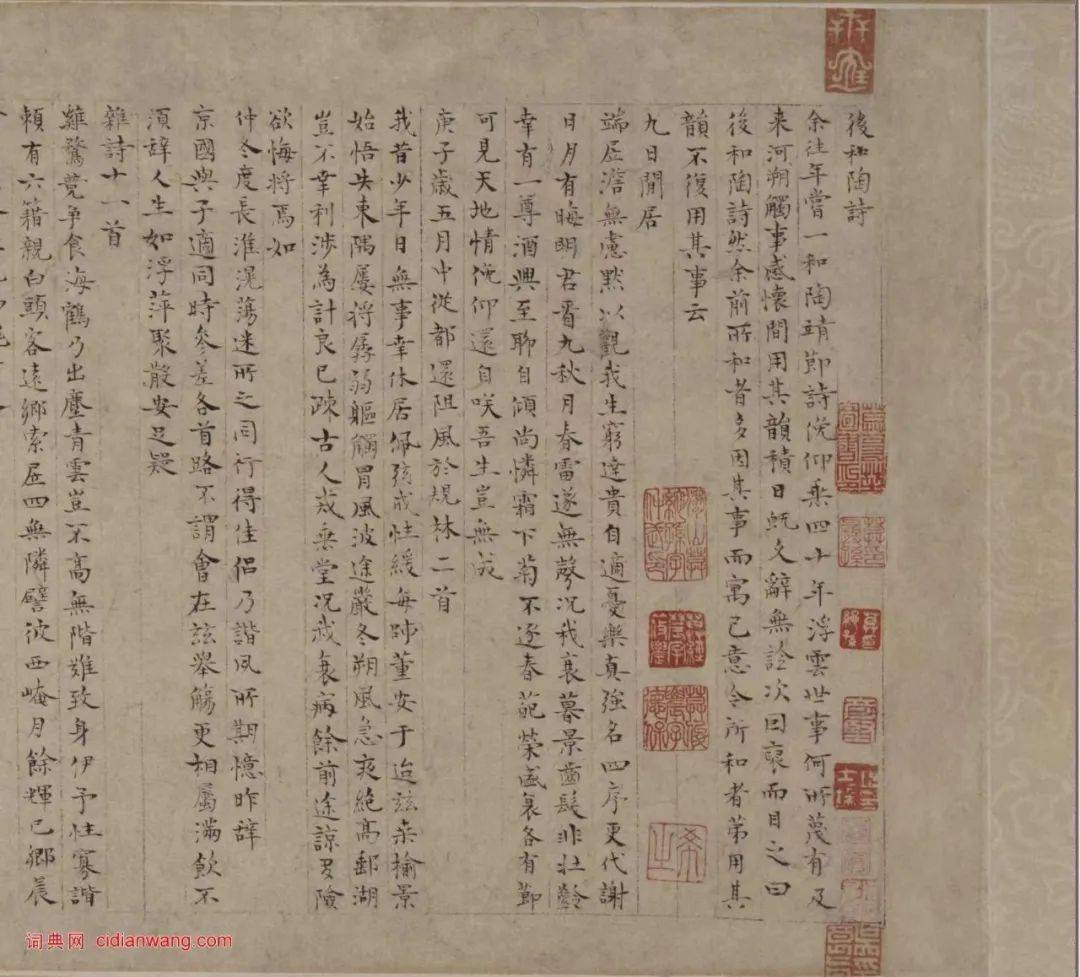 後和陶詩
余往年嘗一和陶靖節詩俛仰乘四十年浮雲世事何所蔑有及
来河朔觸事感懷間用其韻積日既久辭無詮次因裒而目之曰
後和陶詩然余前所和者多因其事而寓己意今所和者第用其
韻不復用其事云
九日閒居
端居澹無慮默以觀我生窮達貴自適憂樂真強名四序更代謝
日月有晦明君看九秋月春雷遂無聲况我衰暮景齒髮非壯齡
幸有一尊酒興至聊自傾尚憐霜下菊不逐春葩榮盛衰各有節
可見天地情俛仰還自咲吾生豈無成
庚子歲五月中從都還阻風於規林二首
我昔少年日無事幸休居佩弦戒性緩每師董安于迨兹桑榆景
始悟失東隅屢將孱弱軀觸冒風波途嚴冬朔風急夜絶高郵湖
豈不幸利涉為計良已疎古人戒乘堂况我衰病餘前途諒多險
欲悔將焉如
仲冬度長淮滉蕩迷所之同行得佳侣乃諧夙所期憶昨辞
京國與子適同時參差各首路不謂會在兹舉觴更相屬滿飲不
須辞人生如浮萍聚散安足疑
雜詩十一首
雞鶩競争食海鶴乃出塵青雲豈不高無階難致身伊予性寡諧
頼有六籍親白頭客遠鄉索居四無隣譬彼西崦月餘輝已鄉晨
词典网 cidianwang.com